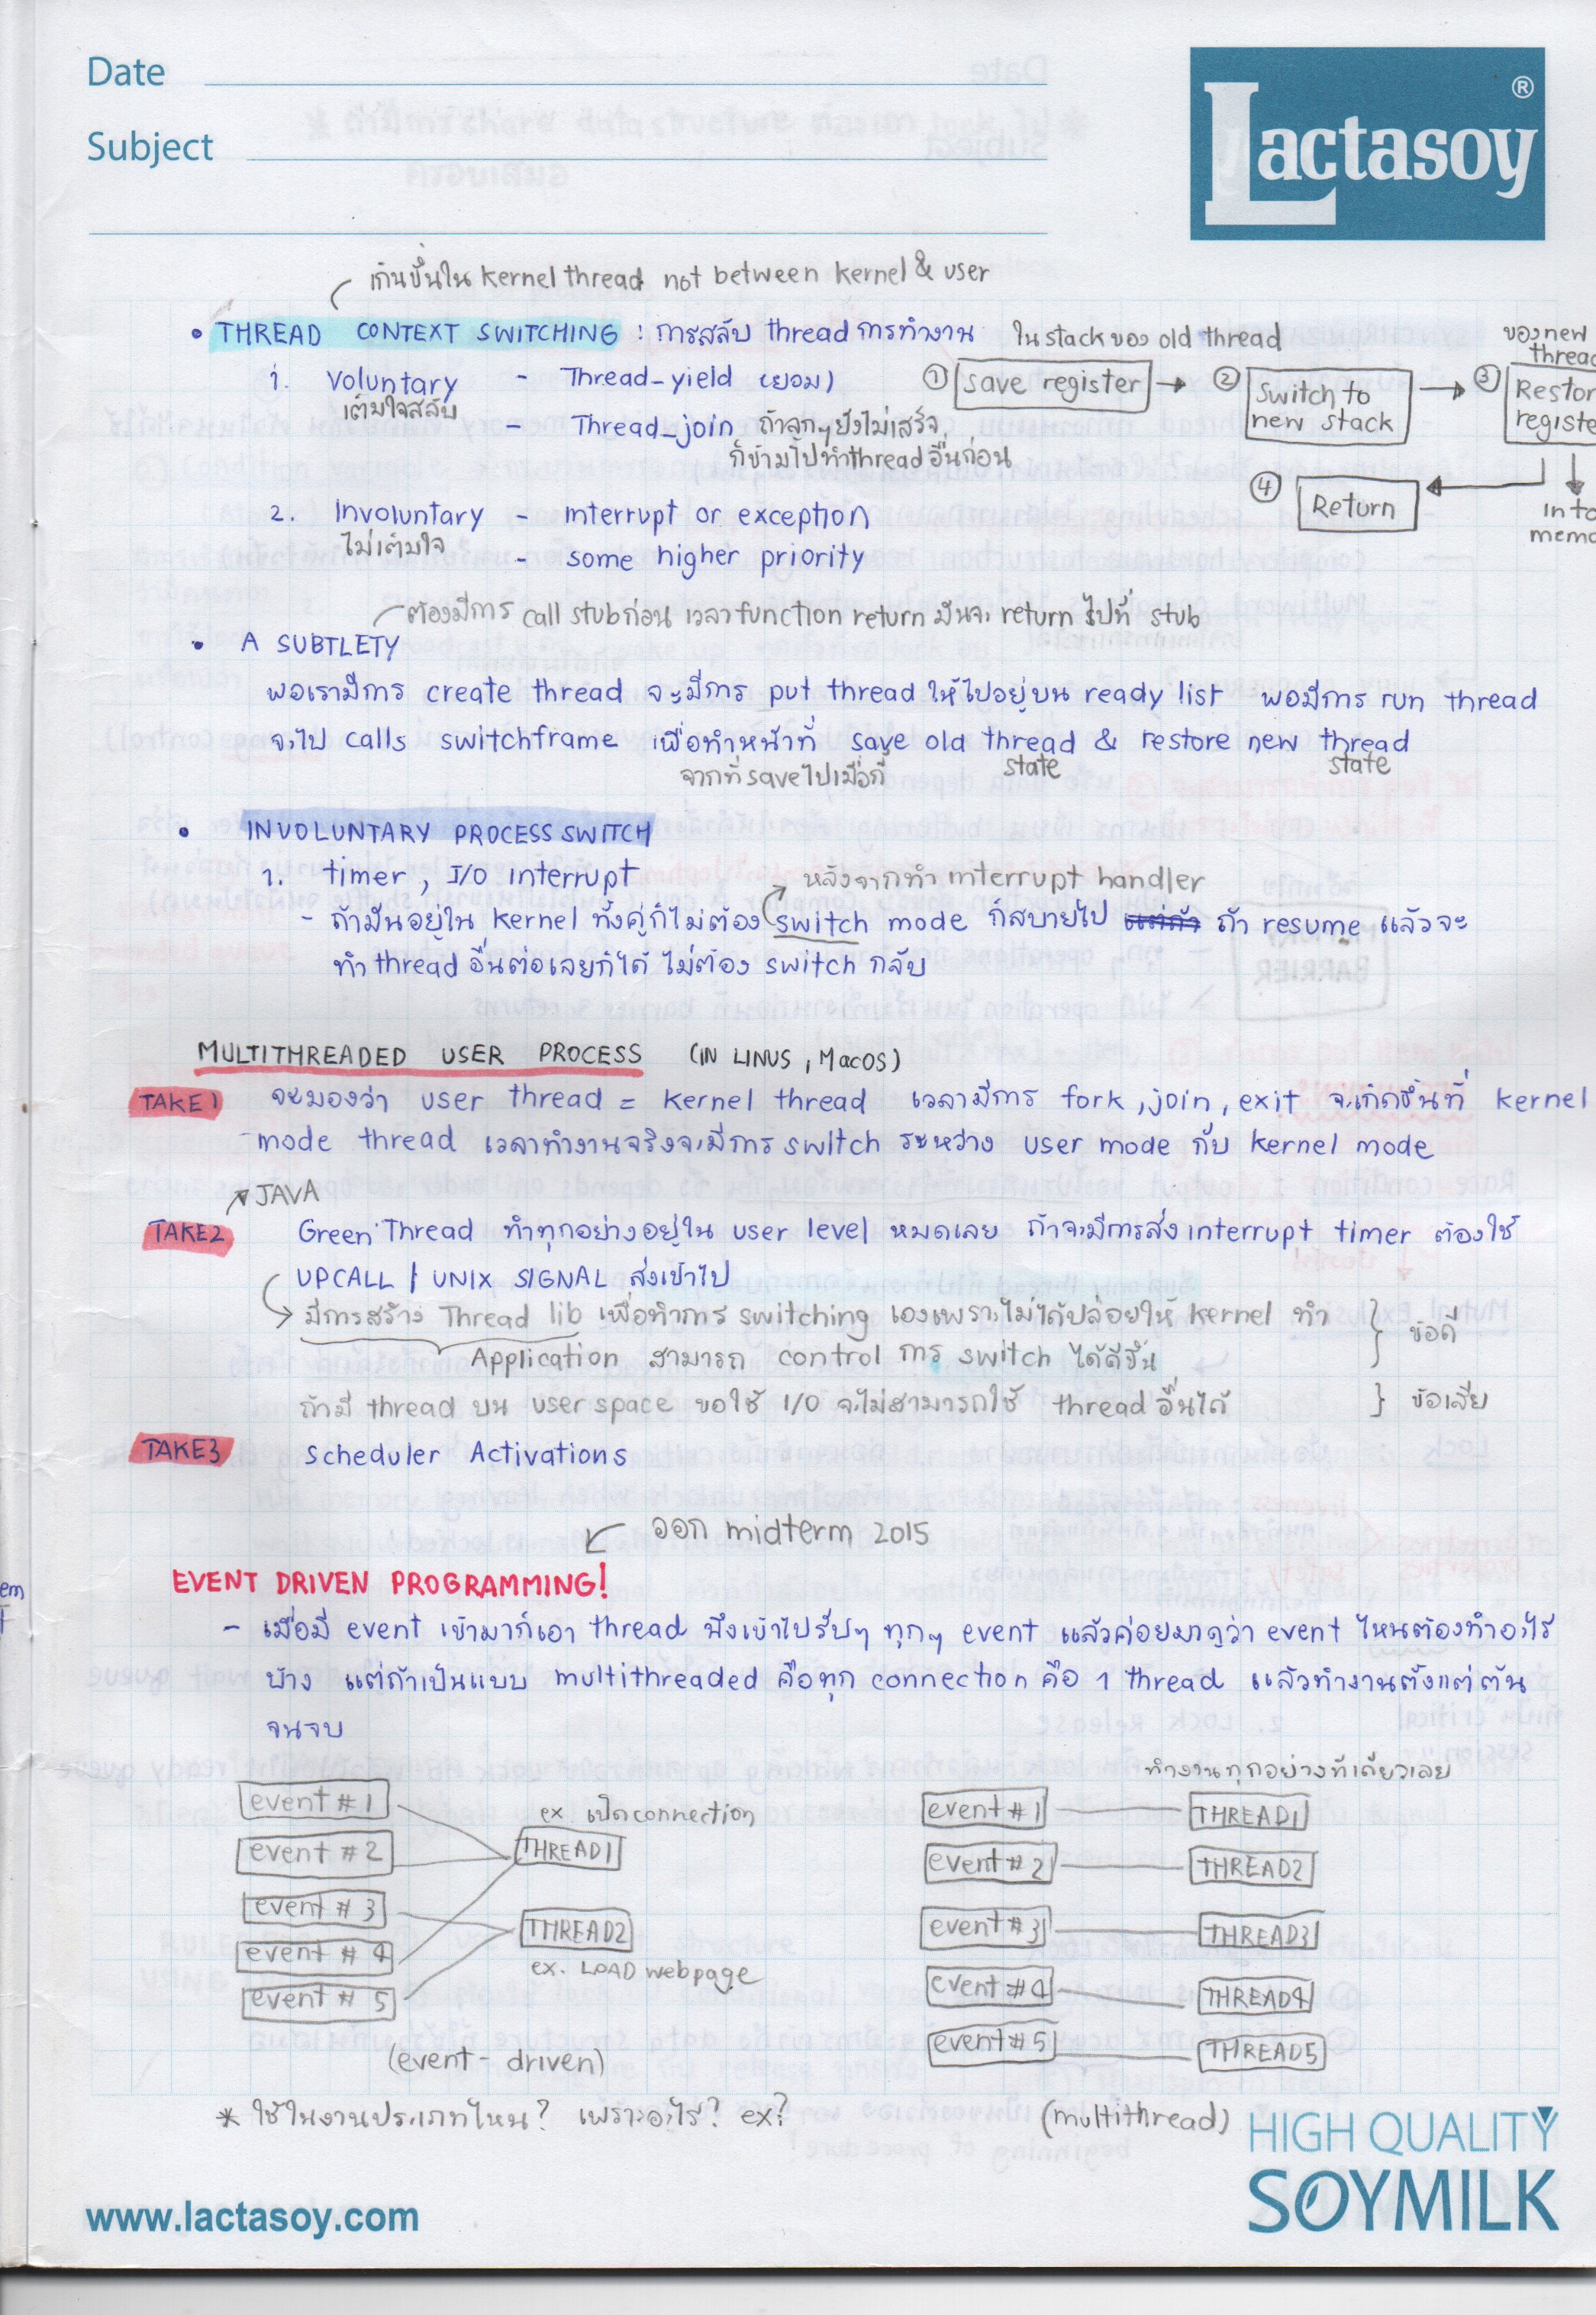 Date
Subject
Lactasoy ®
เกิดขึ้นใน kernel thread not between kernel & user
• THREAD CONTEXT SWITCHING : การสลับ thread การทำงาน
ใน stack ของ old thread
ของ new
thread
1. Voluntary - Thread_yield (ยอม)
เต็มใจสลับ
- Thread_join ถ้าลูกๆยังไม่เสร็จ
ก็ข้ามไปทำ thread อื่นก่อน
① save register
② Switch to
new stack
③ Restor
registe
④ Return
into
memo
2. Involuntary - interrupt or exception
ไม่เต็มใจ
- some higher priority
ต้องมีการ call stub ก่อน เวลา function return มันจะ return ไปที่ stub
• A SUBTLETY
พอเรามีการ create thread จะมีการ put thread ให้ไปอยู่บน ready list พอมีการ run thread
จะไป calls switchframe เพื่อทำหน้าที่ save old thread & restore new thread
จากที่ save ไปเมื่อกี้ state state
• INVOLUNTARY PROCESS SWITCH
1. timer, I/O interrupt
หลังจากทำ interrupt handler
- ถ้ามันอยู่ใน kernel ทั้งคู่ก็ไม่ต้อง switch mode ก็สบายไป แต่ถ้า ถ้า resume แล้วจะ
ทำ thread อื่นต่อเลยก็ได้ ไม่ต้อง switch กลับ
MULTITHREADED USER PROCESS (IN LINUS, MacOS)
TAKE1 จะมองว่า user thread = kernel thread เวลามีการ fork, join, exit จะเกิดขึ้นที่ kernel
mode thread เวลาทำงานจริงจะมีการ switch ระหว่าง user mode กับ kernel mode
JAVA
TAKE2 Green Thread ทำทุกอย่างอยู่ใน user level หมดเลย ถ้าจะมีการส่ง interrupt timer ต้องใช้
UPCALL / UNIX SIGNAL ส่งเข้าไป
มีการสร้าง Thread lib เพื่อทำการ switching เองเพราะไม่ได้ปล่อยให้ kernel ทำ
Application สามารถ control การ switch ได้ดีขึ้น
ข้อดี
ถ้ามี thread บน user space ขอใช้ I/O จะไม่สามารถใช้ thread อื่นได้ ข้อเสีย
TAKE3 Scheduler Activations
ออก midterm 2015
em
EVENT DRIVEN PROGRAMMING!
- เมื่อมี event เข้ามาก็เอา thread นึงเข้าไปรับๆ ทุกๆ event แล้วค่อยมาดูว่า event ไหนต้องทำอะไร
บ้าง แต่ถ้าเป็นแบบ multithreaded คือทุก connection คือ 1 thread แล้วทำงานตั้งแต่ต้น
จนจบ
event #1
event #2
event #3
event #4
event #5
ex. เปิด connection
THREAD1
THREAD2
ex. LOAD webpage
(event-driven)
ทำงานทุกอย่างทีเดียวเลย
event #1 THREAD1
event #2 THREAD2
event #3 THREAD3
event #4 THREAD4
event #5 THREAD5
(multithread)
* ใช้ในงานประเภทไหน? เพราะอะไร? ex?
HIGH QUALITY
SOYMILK
www.lactasoy.com